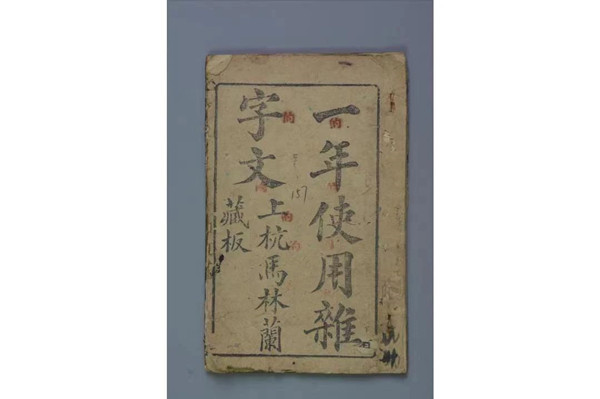 一年使用雜
字文
上杭馬林蘭
藏板
157